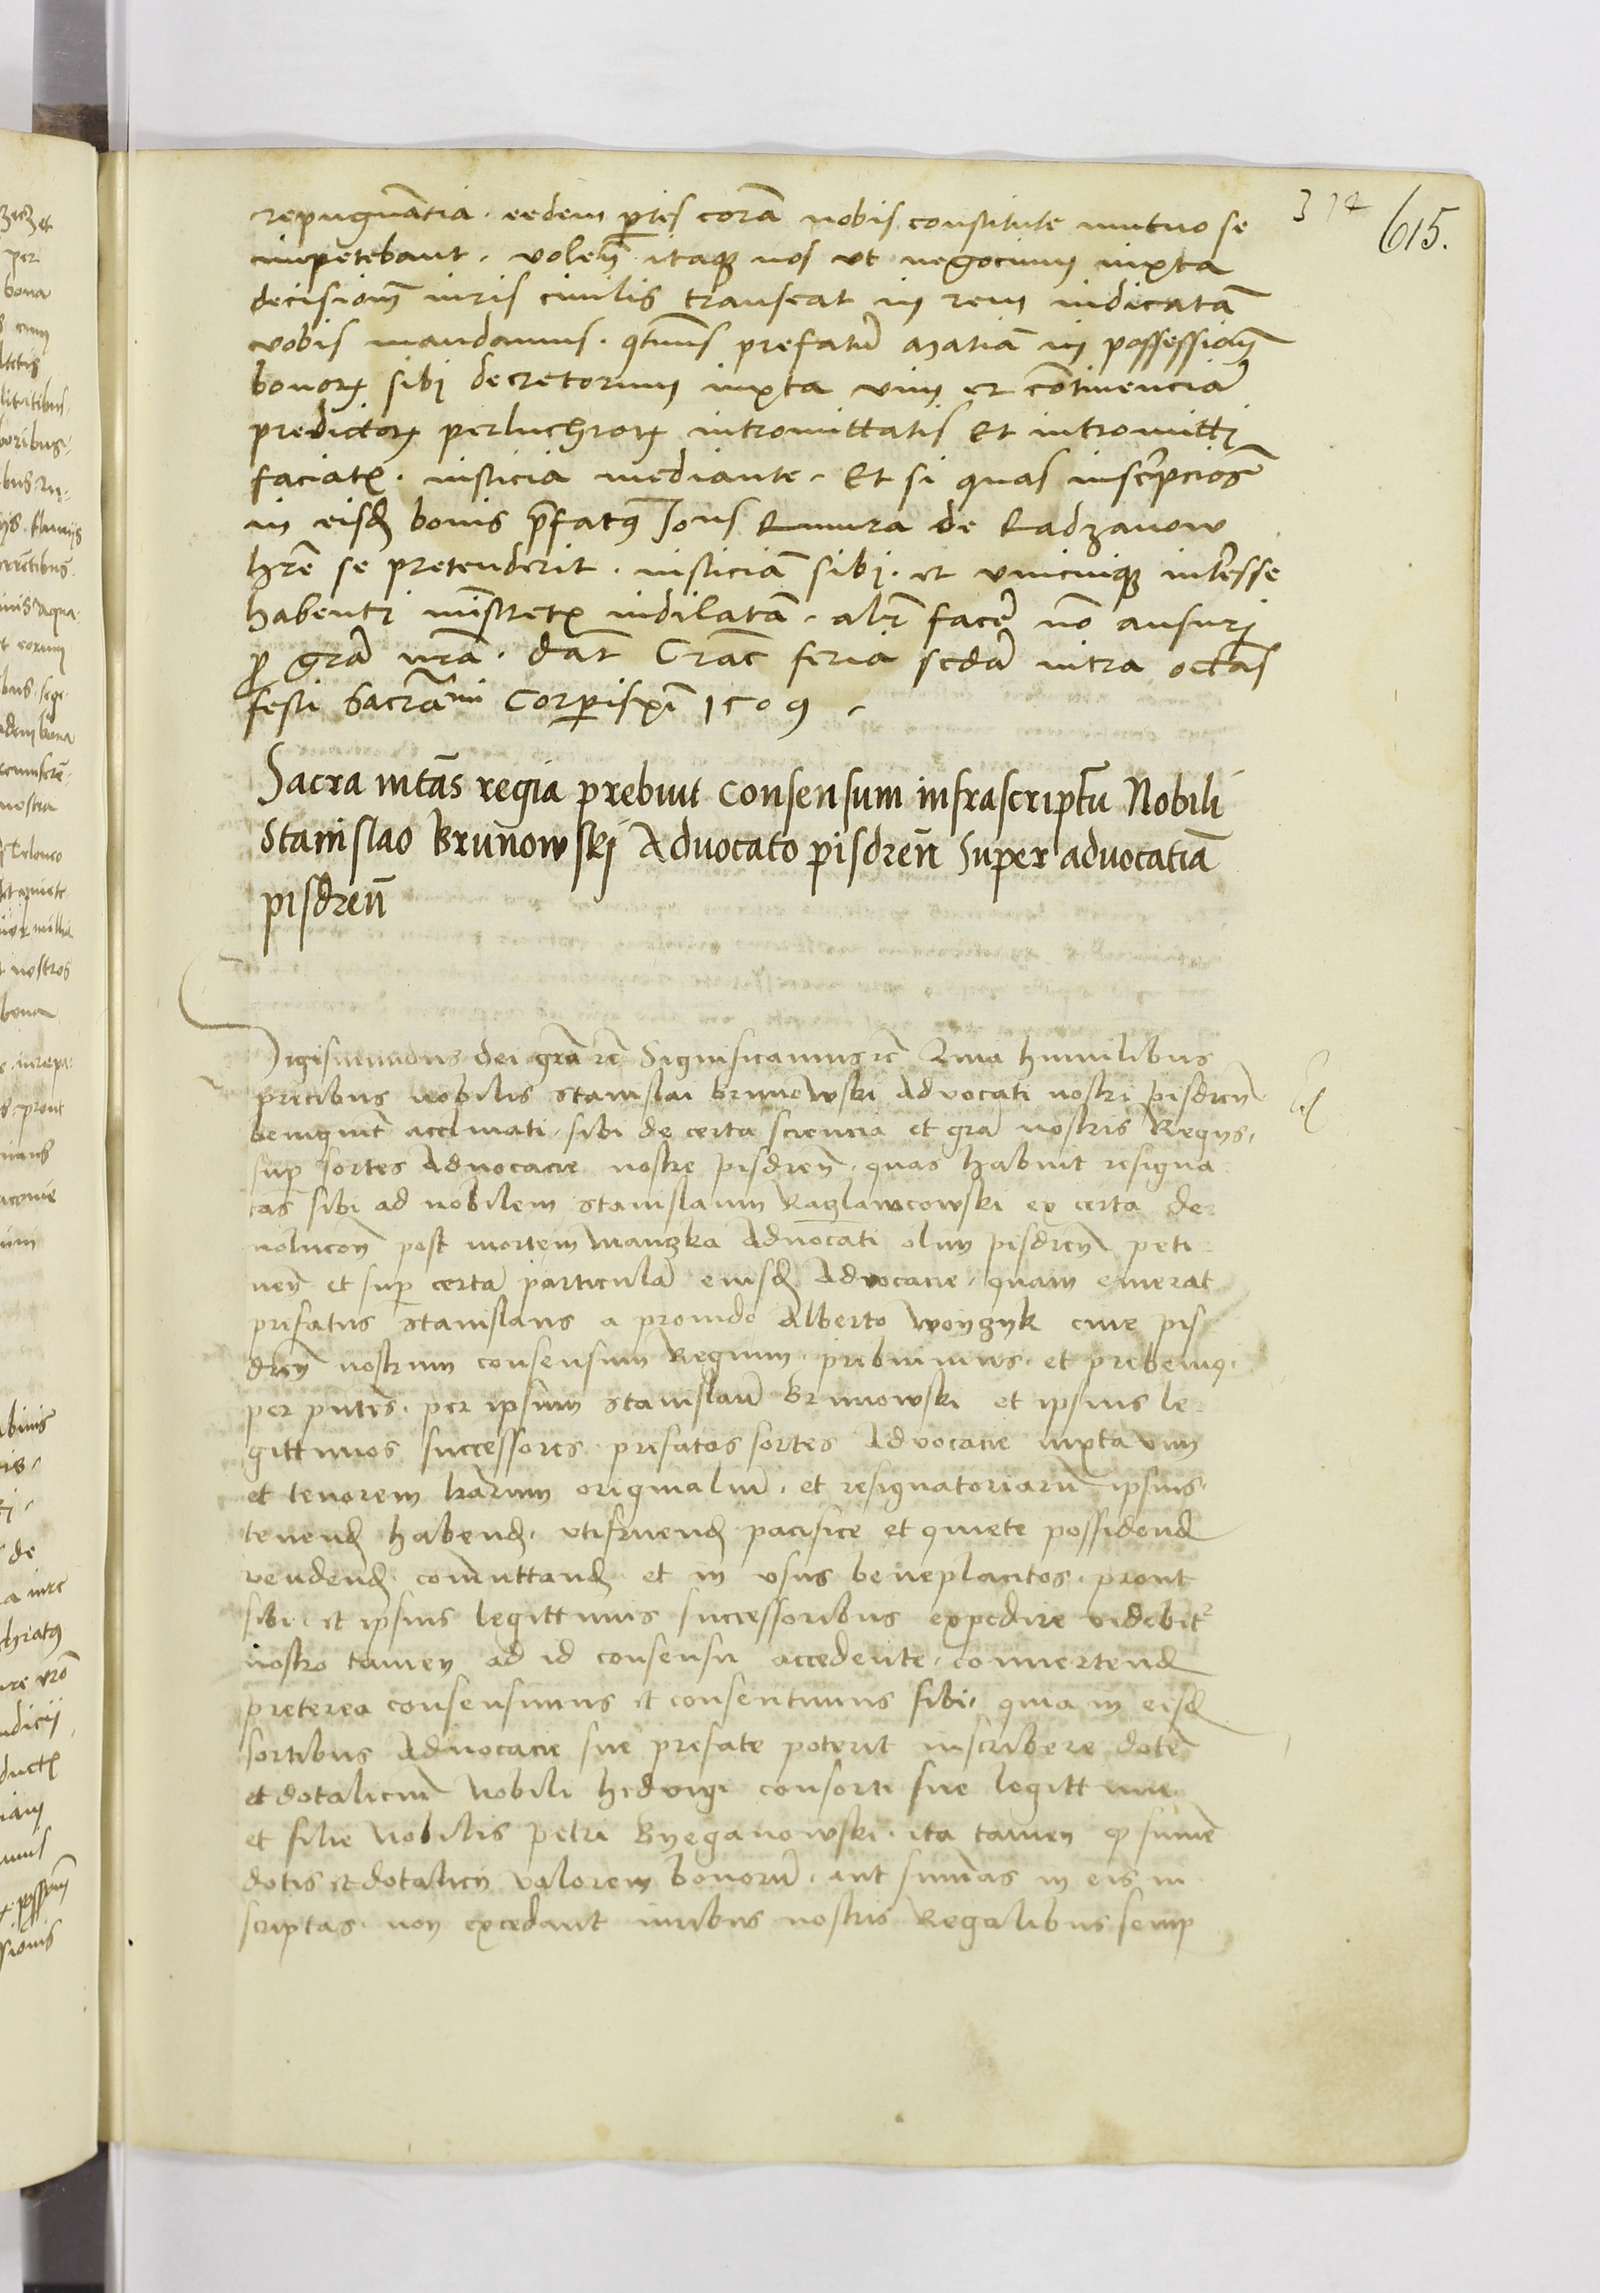 314
615.
repugnãtia . eedem ptes corã nobis constitute mutuo se
impetebant . volen̄ itaq̄ nos ut negocium iuxta
decisionē iuris civilis transeat in rem iudicatã
vobis mandamus . prefatū Matiã in possessionē
bonoꝝ sibi decretorum iuxta vim et cōtinenciã
predictoꝝ intromittatis Et intromitti
faciatꝭ . iusticia mediante . Et si quas inscripciōes
in eisdē bonis p̄fatꝰ de Radzanow
hr̄e se pretenderit . iusticiã sibi . et unicuiq̄ interesse
habenti ministretꝭ indilatã . alr̄ facere nō ausuri
ꝓ gr̄a nr̄a . dat̄ Crac̄ feria scd̄a intra octãs
festi Sacramti Corporis xp̄i 1509
Sacra mtãs regia prebuit consensum infrascriptū Nobili
Stanislao Brunowski Advocato pisdren̄ Super advocatiã
pisdren̄
Sigismundus dei grã rc̄ Significamus rc̄ Quia humilibus
precibus nobilis Stanislai Brunowski Advocati nostri pisdren̄
benignit̄ acclinati . sibi de certa sciencia et grã nostris Regijs .
sup sortes Advocacie nostre pisdren̄ . quas habuit resigna
tas sibi ad nobilem Stanislaum Raglawcowski ex certa de
volucon̄ post mortem Manzka Advocati olim pisdren̄ peti
nen̄ et sup certã particulã eiusdē Advocacie . quam emerat
prefatus Stanislaus a provido Alberto woyzyk cive pis
dren̄ nostrum consensum Regium . prebuimus . et prebemꝰ .
per pntes . per ipsum Stanislaū Brunowski et ipsius le
gittimos successores . prefatas sortes Advocacie iuxta vim
et tenorem lr̄arum originaliū . et resignatoriarū ipsius .
tenend̄ habend̄ . utifruend̄ pacifice et quiete possidend̄
vendend̄ . comuttand̄ et in usus beneplacitos . prout
sibi . et ipsius legittimis successoribus expedire videbit̄
nostro tamen ad id consensu accedente . convertend̄
preterea consensimus et consentimus sibi . quia in eisd̄
sortibus Advocacie sue prefate poterit inscribere dotē
et dotaliciū Nobili hedvigi consorti sue legittime
et filie Nobilis petri Byeganowski . ita tamen ꝙ sume
dotis et dotalicij valorem bonorū . aut sumas in eis in
scriptas . non excedant iuribus nostris Regalibus semp